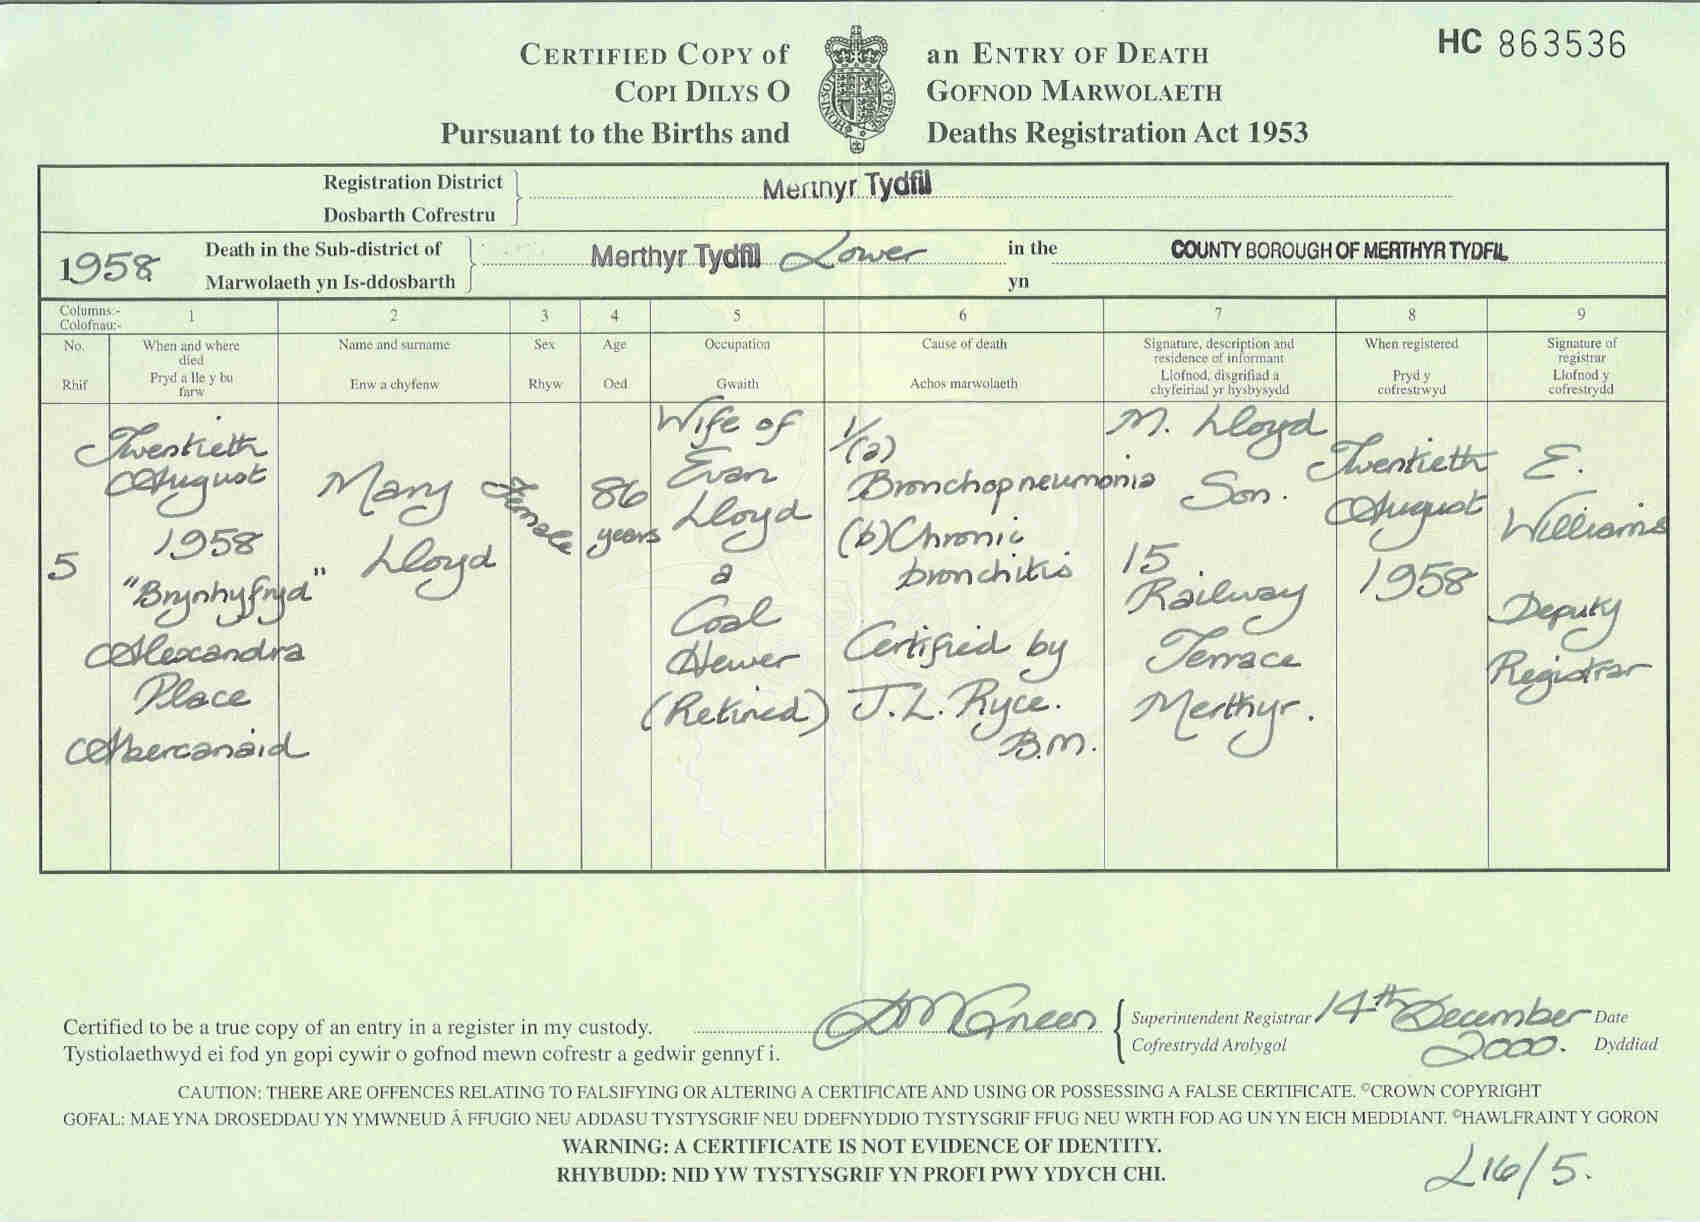 CERTIFIED COPY of an ENTRY OF DEATH
HC 863536
COPI DILYS O GOFNOD MARWOLAETH
Pursuant to the Births and Deaths Registration Act 1953
HONI·SOIT·
Registration District
Dosbarth Cofrestru
Merthyr Tydfil
1958
Death in the Sub-district of
Marwolaeth yn Is-ddosbarth
Merthyr Tydfil Lower
in the
yn
COUNTY BOROUGH OF MERTHYR TYDFIL
Columns:-
Colofnau:-
1 2 3 4 5 6 7 8 9
No.
Rhif
When and where
died
Pryd a lle y bu
farw
Name and surname
Enw a chyfenw
Sex
Rhyw
Age
Oed
Occupation
Gwaith
Cause of death
Achos marwolaeth
Signature, description and
residence of informant
Llofnod, disgrifiad a
chyfeiriad yr hysbysydd
When registered
Pryd y
cofrestrwyd
Signature of
registrar
Llofnod y
cofrestrydd
5
Twentieth
August
1958
"Brynhyfryd"
Alexandra
Place
Abercanaid
Mary
Lloyd
Female
86
years
Wife of
Evan
Lloyd
a
Coal
Hewer
(Retired)
1/(a)
Bronchopneumonia
(b) Chronic
bronchitis
Certified by
J.L. Ryce.
B.M.
M. Lloyd
Son.
15
Railway
Terrace
Merthyr.
Twentieth
August
1958
E.
Williams
Deputy
Registrar
Certified to be a true copy of an entry in a register in my custody.
Tystiolaethwyd ei fod yn gopi cywir o gofnod mewn cofrestr a gedwir gennyf i.
DM Green
Superintendent Registrar
Cofrestrydd Arolygol
14th December
2000.
Date
Dyddiad
CAUTION: THERE ARE OFFENCES RELATING TO FALSIFYING OR ALTERING A CERTIFICATE AND USING OR POSSESSING A FALSE CERTIFICATE. ©CROWN COPYRIGHT
GOFAL: MAE YNA DROSEDDAU YN YMWNEUD Â FFUGIO NEU ADDASU TYSTYSGRIF NEU DDEFNYDDIO TYSTYSGRIF FFUG NEU WRTH FOD AG UN YN EICH MEDDIANT. ©HAWLFRAINT Y GORON
WARNING: A CERTIFICATE IS NOT EVIDENCE OF IDENTITY.
RHYBUDD: NID YW TYSTYSGRIF YN PROFI PWY YDYCH CHI.
L16/5.